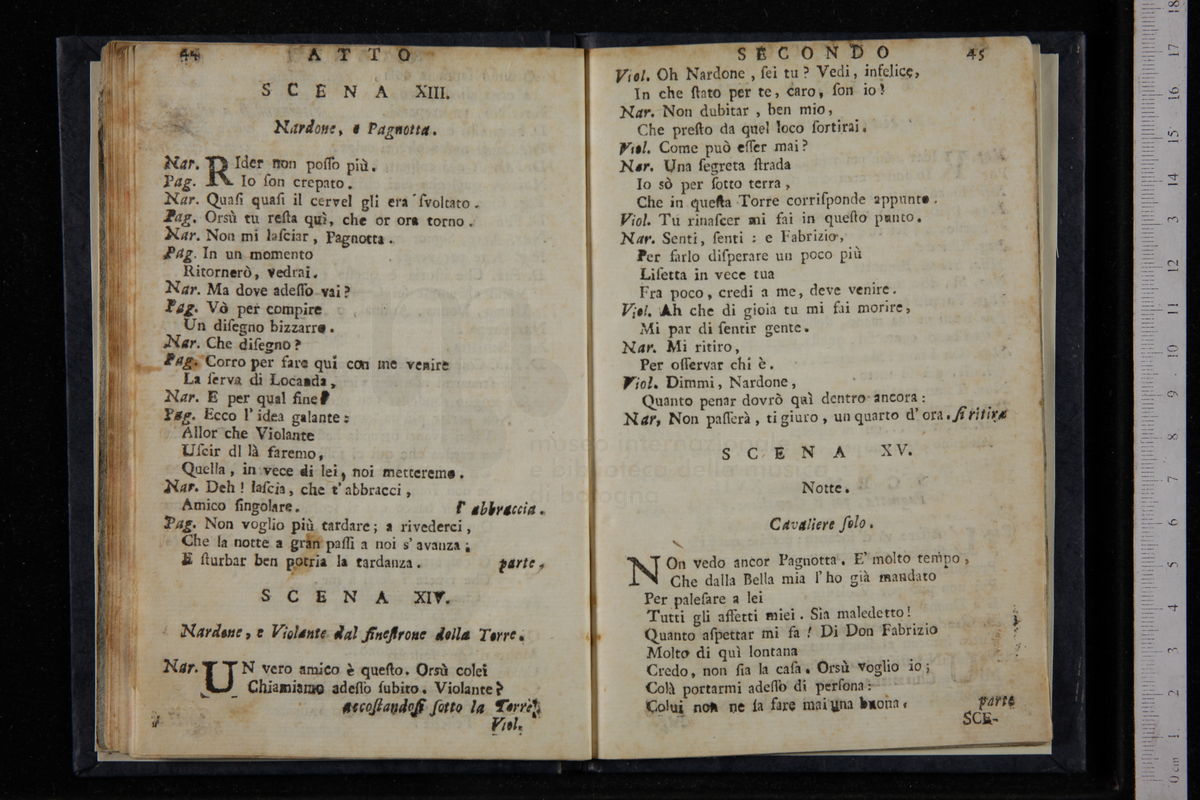 44 ATTO
SCENA XIII.
Nardone, e Pagnotta.
Nar. RIder non poſſo più.
Pag. Io ſon crepato.
Nar. Quaſi quaſi il cervel gli era ſvoltato.
Pag. Orsù tu reſta quì, che or ora torno.
Nar. Non mi laſciar, Pagnotta.
Pag. In un momento
Ritornerò, vedrai.
Nar. Ma dove adeſſo vai?
Pag. Vò per compire
Un diſegno bizzarro.
Nar. Che diſegno?
Pag. Corro per fare qui con me venire
La ſerva di Locanda,
Nar. E per qual fine?
Pag. Ecco l'idea galante:
Allor che Violante
Uſcir di là faremo,
Quella, in vece di lei, noi metteremo.
Nar. Deh! laſcia, che t'abbracci,
Amico ſingolare. l'abbraccia.
Pag. Non voglio più tardare; a rivederci,
Che la notte a gran paſſi a noi s'avanza;
E ſturbar ben potria la tardanza. parte.
SCENA XIV.
Nardone, e Violante dal fineſtrone della Torre.
Nar. UN vero amico è queſto. Orsù colei
Chiamiamo adeſſo ſubito. Violante?
accoſtandoſi ſotto la Torre.
Viol.
SECONDO 45
Viol. Oh Nardone, ſei tu? Vedi, infelice,
In che ſtato per te, caro, ſon io!
Nar. Non dubitar, ben mio,
Che preſto da quel loco ſortirai.
Viol. Come può eſſer mai?
Nar. Una ſegreta ſtrada
Io sò per ſotto terra,
Che in queſta Torre corriſponde appunto.
Viol. Tu rinaſcer mi fai in queſto punto.
Nar. Senti, ſenti: e Fabrizio,
Per farlo diſperare un poco più
Liſetta in vece tua
Fra poco, credi a me, deve venire.
Viol. Ah che di gioia tu mi fai morire,
Mi par di ſentir gente.
Nar. Mi ritiro,
Per oſſervar chi è.
Viol. Dimmi, Nardone,
Quanto penar dovrò quì dentro ancora:
Nar, Non paſſerà, ti giuro, un quarto d'ora. ſi ritira
SCENA XV.
Notte.
Cavaliere ſolo.
NOn vedo ancor Pagnotta. E' molto tempo,
Che dalla Bella mia l'ho già mandato
Per paleſare a lei
Tutti gli affetti miei. Sia maledetto!
Quanto aſpettar mi fa! Di Don Fabrizio
Molto di quì lontana
Credo, non ſia la caſa. Orsù voglio io;
Colà portarmi adeſſo di perſona:
Colui non ne fa fare mai una buona. parte
SCE-
museo internazionale
e biblioteca della musica
di bologna